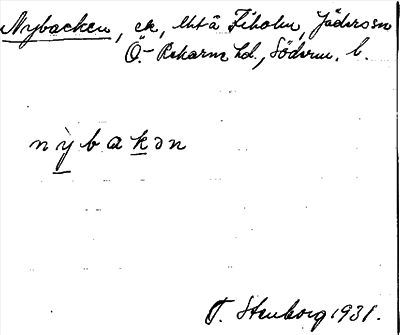 Nybacken, ek, Uht å Fiholm, Jäders sn
Ö.-Rekarne hd., Söderm. l.
nỳbakən
T. Stenborg 1931.